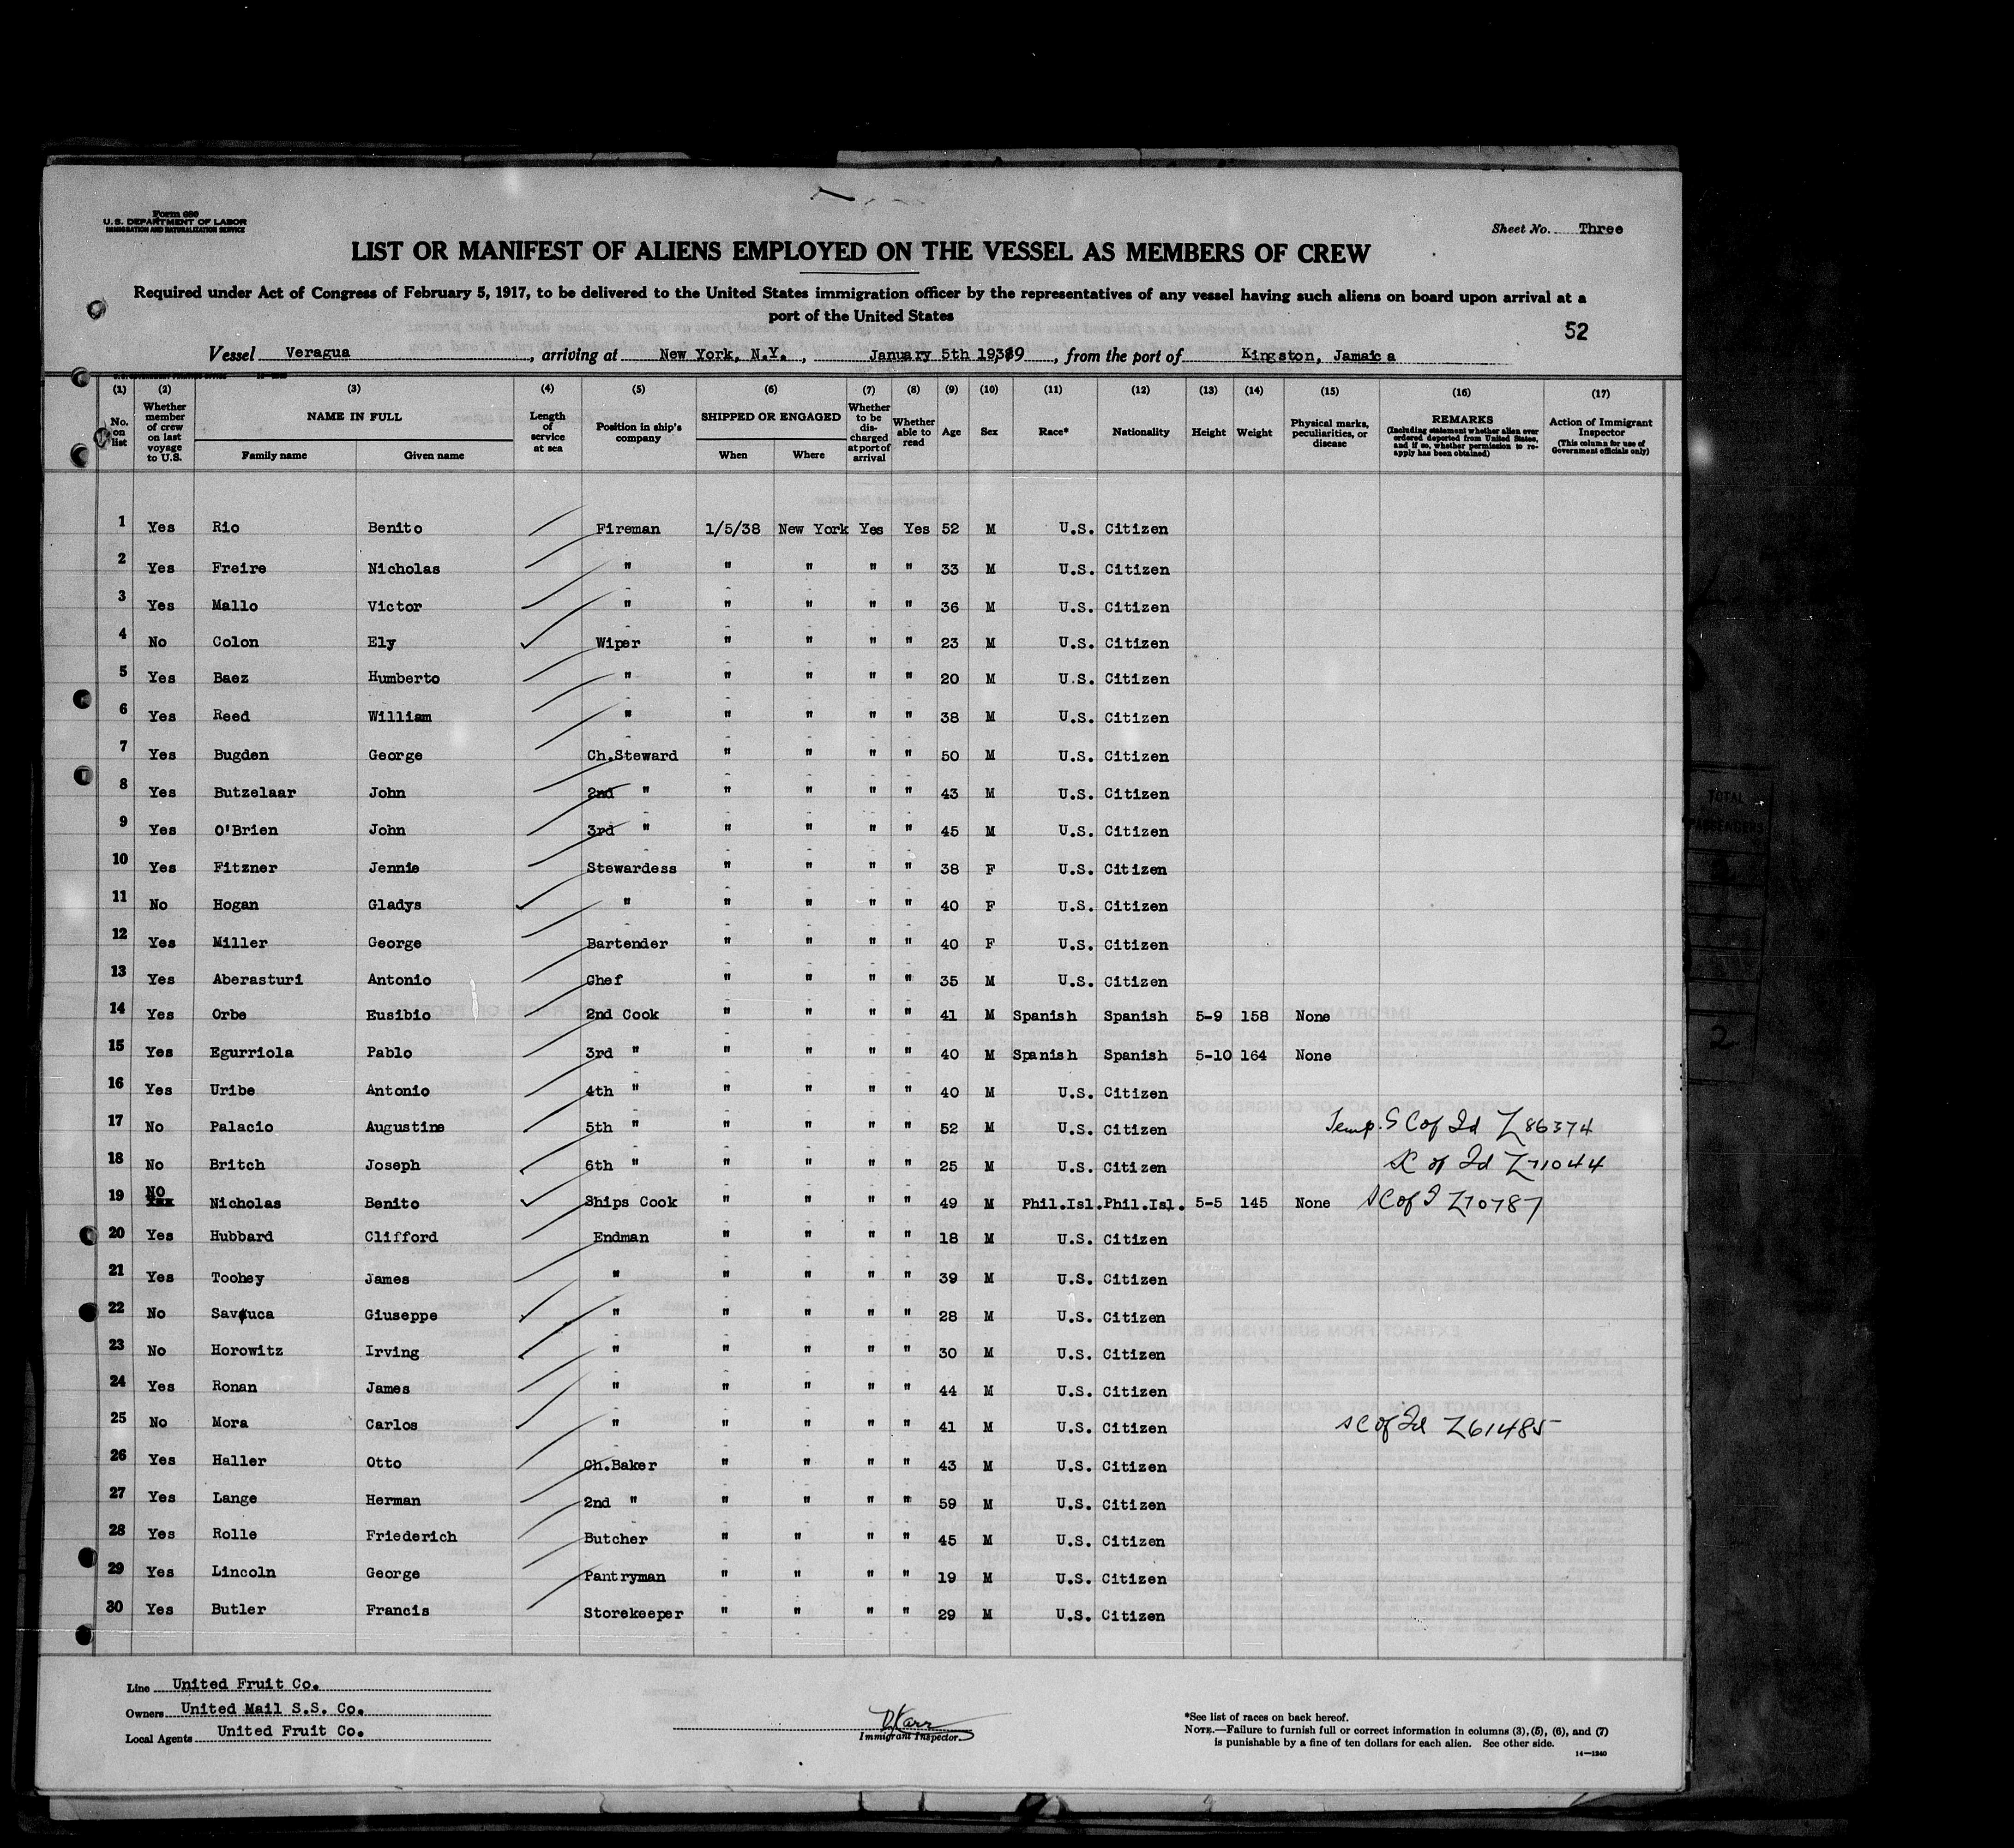 Form 680
U.S. DEPARTMENT OF LABOR
IMMIGRATION AND NATURALIZATION SERVICE
Sheet No. Three
LIST OR MANIFEST OF ALIENS EMPLOYED ON THE VESSEL AS MEMBERS OF CREW
Required under Act of Congress of February 5, 1917, to be delivered to the United States immigration officer by the representatives of any vessel having such aliens on board upon arrival at a
port of the United States
52
Vessel Veragua, arriving at New York, N.Y., January 5th 1939, from the port of Kingston, Jamaica
(1) (2) (3) (4) (5) (6) (7) (8) (9) (10) (11) (12) (13) (14) (15) (16) (17)
No. on list Whether member of crew on last voyage to U.S. NAME IN FULL Family name Given name Length of service at sea Position in ship's company SHIPPED OR ENGAGED When Where Whether to be discharged at port of arrival Whether able to read Age Sex Race* Nationality Height Weight Physical marks, peculiarities, or disease REMARKS (Including statement whether alien ever ordered deported from United States, and if so, whether permission to reapply has been obtained) Action of Immigrant Inspector (This column for use of Government officials only)
1 Yes Rio Benito Fireman 1/5/38 New York Yes Yes 52 M U.S. Citizen
2 Yes Freire Nicholas " " " " " 33 M U.S. Citizen
3 Yes Mallo Victor " " " " " 36 M U.S. Citizen
4 No Colon Ely Wiper " " " " 23 M U.S. Citizen
5 Yes Baez Humberto " " " " " 20 M U.S. Citizen
6 Yes Reed William " " " " " 38 M U.S. Citizen
7 Yes Bugden George Ch.Steward " " " " 50 M U.S. Citizen
8 Yes Butzelaar John 2nd " " " " " 43 M U.S. Citizen
9 Yes O'Brien John 3rd " " " " " 45 M U.S. Citizen
10 Yes Fitzner Jennie Stewardess " " " " 38 F U.S. Citizen
11 No Hogan Gladys " " " " " 40 F U.S. Citizen
12 Yes Miller George Bartender " " " " 40 F U.S. Citizen
13 Yes Aberasturi Antonio Chef " " " " 35 M U.S. Citizen
14 Yes Orbe Eusibio 2nd Cook " " " " 41 M Spanish Spanish 5-9 158 None
15 Yes Egurriola Pablo 3rd " " " " " 40 M Spanish Spanish 5-10 164 None
16 Yes Uribe Antonio 4th " " " " " 40 M U.S. Citizen
17 No Palacio Augustine 5th " " " " " 52 M U.S. Citizen Temp. S C of Id Z86374
18 No Britch Joseph 6th " " " " " 25 M U.S. Citizen SC of Id Z71044
19 No Nicholas Benito Ships Cook " " " " 49 M Phil.Isl. Phil.Isl. 5-5 145 None SC of I Z70787
20 Yes Hubbard Clifford Endman " " " " 18 M U.S. Citizen
21 Yes Toohey James " " " " " 39 M U.S. Citizen
22 No Savuca Giuseppe " " " " " 28 M U.S. Citizen
23 No Horowitz Irving " " " " " 30 M U.S. Citizen
24 Yes Ronan James " " " " " 44 M U.S. Citizen
25 No Mora Carlos " " " " " 41 M U.S. Citizen SC of Id Z61485
26 Yes Haller Otto Ch.Baker " " " " 43 M U.S. Citizen
27 Yes Lange Herman 2nd " " " " " 59 M U.S. Citizen
28 Yes Rolle Friederich Butcher " " " " 45 M U.S. Citizen
29 Yes Lincoln George Pantryman " " " " 19 M U.S. Citizen
30 Yes Butler Francis Storekeeper " " " " 29 M U.S. Citizen
Line United Fruit Co.
Owners United Mail S.S. Co.
Local Agents United Fruit Co.
DKarr
Immigrant Inspector.
*See list of races on back hereof.
NOTE.—Failure to furnish full or correct information in columns (3), (5), (6), and (7)
is punishable by a fine of ten dollars for each alien. See other side.
14—1240
TOTAL
PASSENGERS
2